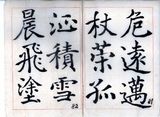 危遠邁
杖策孤
征積雪
晨飛塗
82